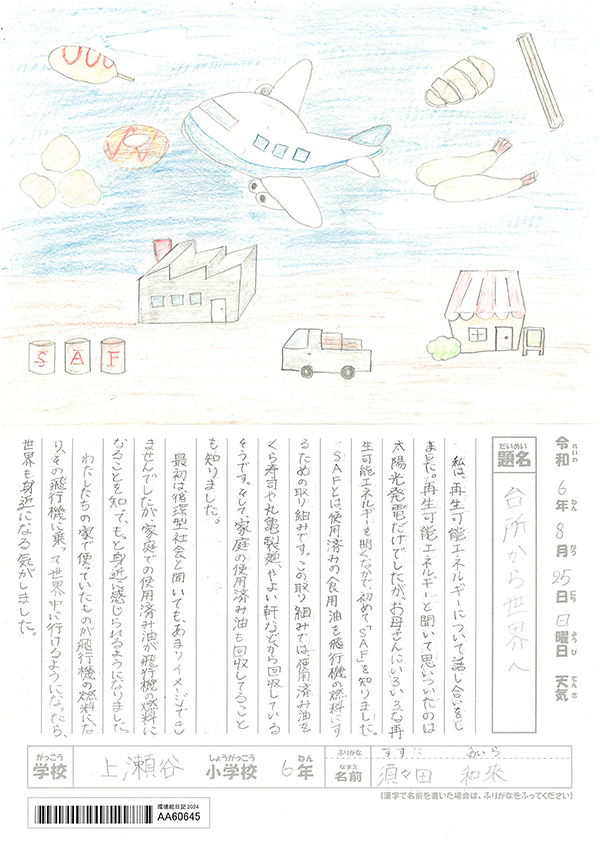 S A F
令和 6年 8月 25日 日曜日 天気
れいわ ねん がつ にち ようび てんき
だいめい
題名 台所から世界へ
私は、再生可能エネルギーについて話し合いをし
ました。再生可能エネルギーと聞いて思いついたのは
太陽光発電だけでしたが、お母さんにいろいろな再
生可能エネルギーを聞くなかで、初めて「SAF」を知りました。
SAFとは、使用済みの食用油を飛行機の燃料にす
るための取り組みです。この取り組みでは、使用済み油を
くら寿司や丸亀製麺、やよい軒などから回収している
そうです。そして、家庭の使用済み油も回収してること
も知りました。
最初は循環型社会と聞いても、あまりイメージでき
ませんでしたが、家庭での使用済み油が飛行機の燃料に
なることを知って、もっと身近に感じられるようになりました。
わたしたちの家で使っていたものが飛行機の燃料にな
り、その飛行機に乗って世界中に行けるようになったら、
世界も身近になる気がしました。
がっこう しょうがっこう ねん ふりがな すすだ あいら
学校 上瀬谷 小学校 6年 なまえ 名前 須々田 和來
(漢字で名前を書いた場合は、ふりがなをふってください)
環境絵日記2024
AA60645